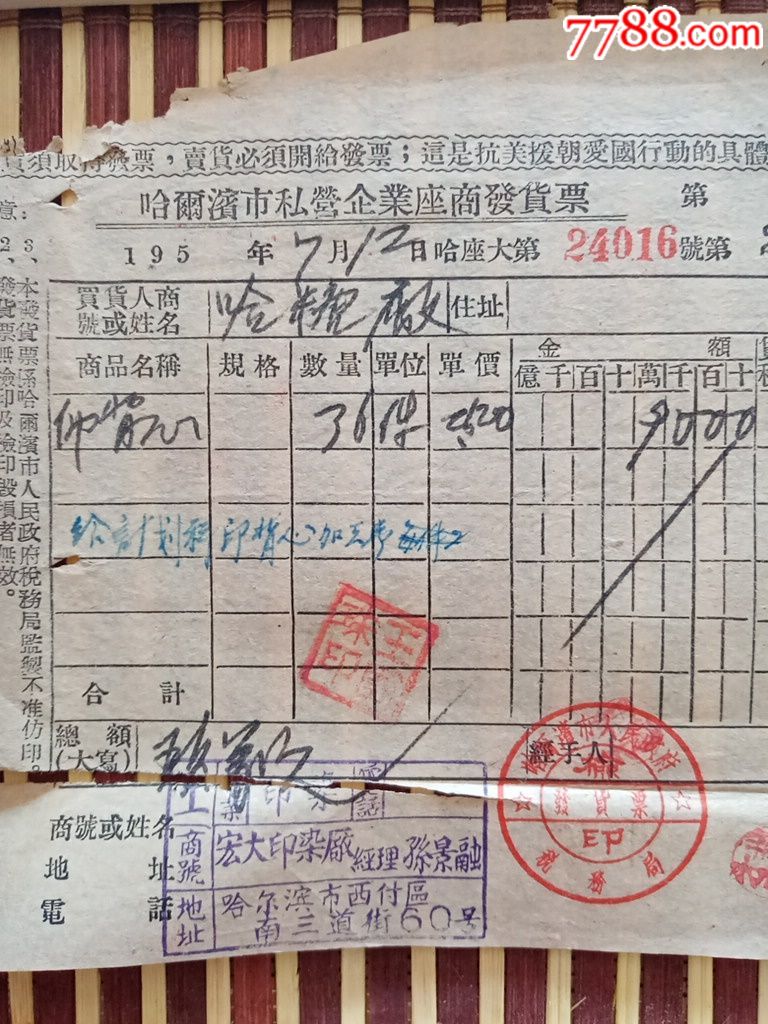 7788.com
票，賣貨必須開給發票；這是抗美援朝愛國行動的具體
哈爾濱市私營企業座商發貨票 第
195 年7月12日哈座大第 24016 號第
買貨人商號或姓名 哈糖廠 住址
商品名稱 規格 數量 單位 單價 金額
億千百十萬千百十
印背心 36 件 2520 9000
印背心加工费每件2
合計
總額（大寫）
經手人
商號或姓名
地址
電話
印染 電話
商號 宏大印染廠 經理 孫景融
地址 哈尔滨市西付區南三道街60号
哈爾濱市人民政府
發貨票
稅務局
3、本發貨票係哈爾濱市人民政府稅務局監製不准仿印。
2、發貨票無檢印及檢印毀損者無效。